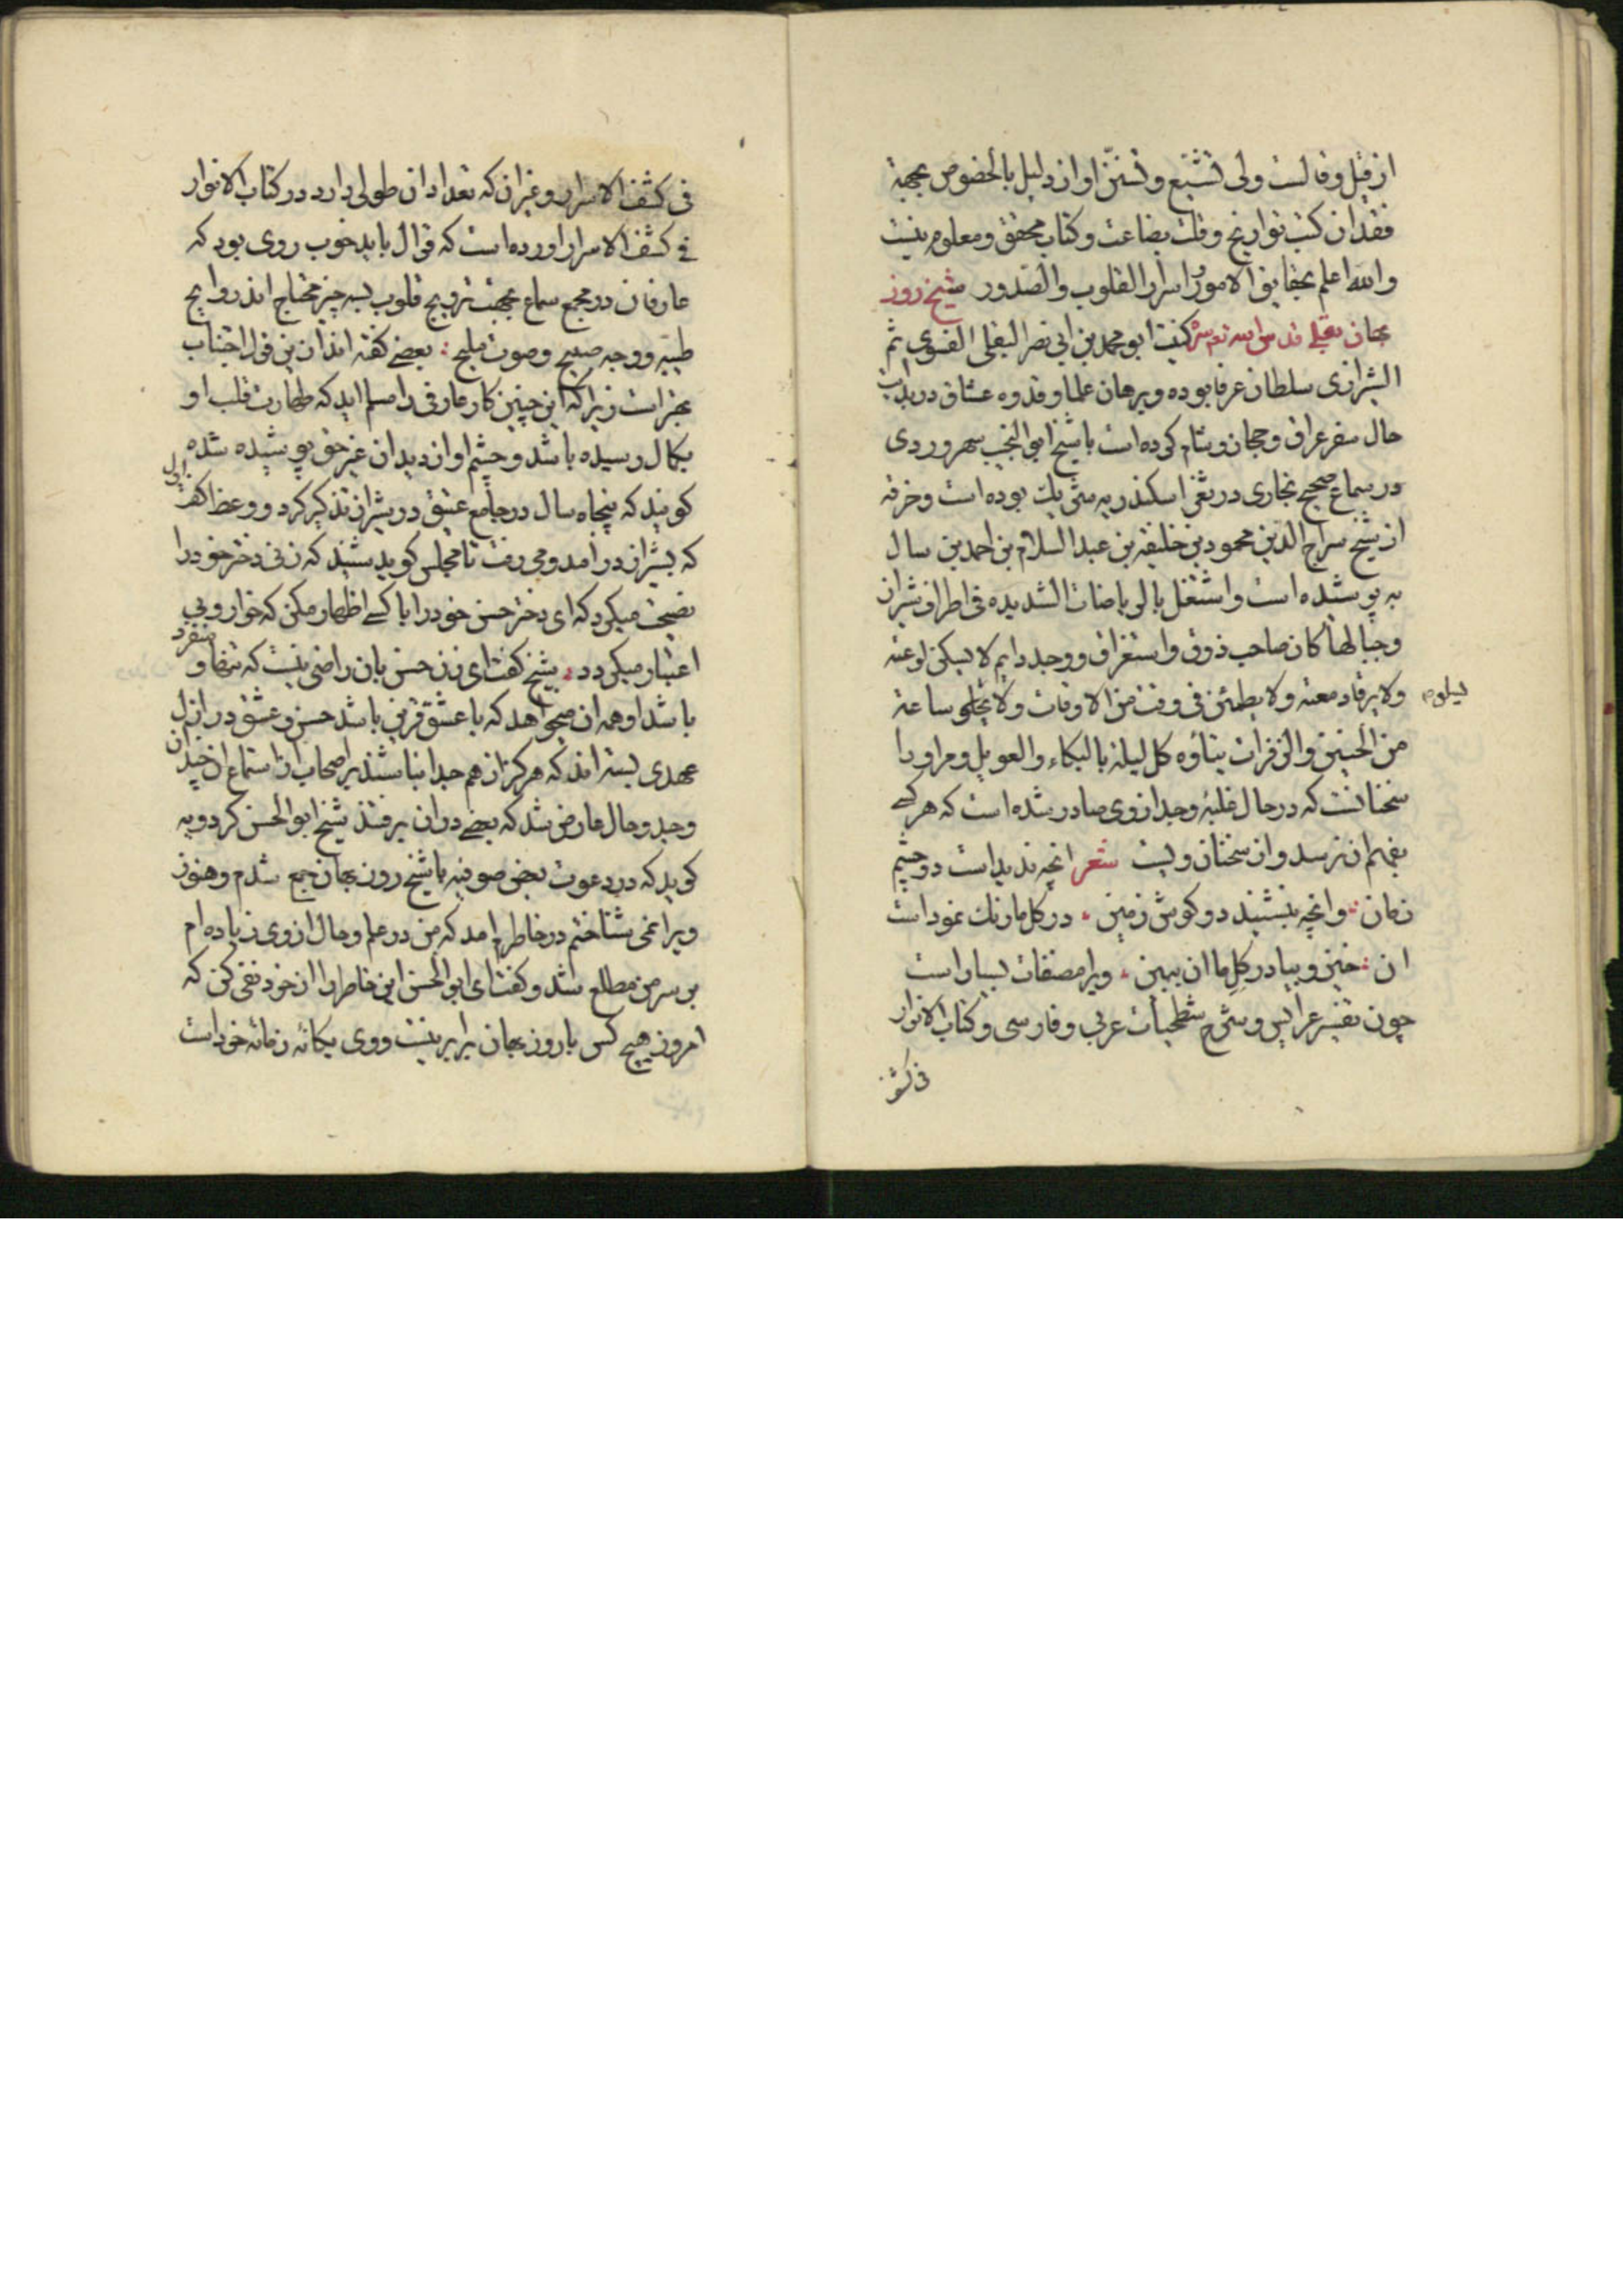 از قبل وقالست ولی تشیع و تسنن او از دلیل بالخصوص بجهة
فقدان کتب تواریخ وقلت بضاعت وکتاب محقق ومعلوم نیست
والله اعلم بحقایق الامور واسرار القلوب والصدور شیخ روز
بهان بقلی قدس الله تع سره کنیت ابو محمد بن ابی نصر البقلی الفسوی ثم
الشیرازی سلطان عرفا بوده وبرهان علما وقدوه عشاق در بدایت
حال سفر عراق وحجاز وشام کرده است با شیخ ابو النجیب سهروردی
در سماع صحیح بخاری در ثغر اسکندریه شریک بوده است وخرقه
از شیخ سراج الدین محمود بن خلیفه بن عبد السلام بن احمد بن سال
به پوشیده است واشتغل بالریاضات الشدیده فی اطراف شیراز
وجبالها کان صاحب ذوق واستغراق ووجد دایم لا یسکن لوعته
ولا یرقاد معته ولا یطمئن فی وقت من الاوقات ولا یخلی ساعة
من الحنین والزفرات یتاوه کل لیلة بالبکاء والعویل ومراورا
سخنانست که در حال غلبه وجد از وی صادر شده است که هر کسی
بفهم ان نرسد واز سخنان ویست شعر انچه ندیداست دو چشم
زمان وانچه بنشنید دو کوش زمین در کل ما رنک نمود است
ان خیز وبیا در کل ما ان ببین ویرا مصنفات بسیار است
چون تفسیر عرایس وشرح شطحیات عربی وفارسی وکتاب الانوار
فی کشف
فی کشف الاسرار وغیر ان که تعداد ان طولی دارد در کتاب الانوار
فی کشف الاسرار اورده است که قوال باید خوب روی بود که
عارفان در مجمع سماع بجهت ترویج قلوب بسه چیز محتاج اند روایح
طیبه ووجه صبیح وصوت ملیح بعضی کفته اند از ین قوال اجتناب
بهتر است زیرا که این چنین کار عارفی را مسلم اید که طهارت قلب او
بکمال رسیده باشد وچشم او از دیدن غیر حق پوشیده شده
کویند که پنجاه سال در جامع عتیق در شیراز تذکیر کرد ووعظ کفت اول
که بشیراز در امد ومی رفت تا مجلس کوید شنید که زنی دختر خود را
نصیحت میکرد که ای دختر حسن خود را با کسی اظهار مکن که خوار وبی
اعتبار میکردد شیخ کفت ای زن حسن بان راضی نیست که تنها و منفرد
باشد او همه ان میخواهد که با عشق قرین باشد حسن وعشق در ازل
عهدی بسته اند که هرکز از هم جدا نباشند بر اصحاب از استماع ان چندان
وجد وحال عارض شد که بعضی در ان برفتند شیخ ابو الحسن کردویه
کوید که در دعوت بعض صوفیه با شیخ روز بهان جمع شدم وهنوز
ویرا نمی شناختم در خاطرم امد که من در علم وحال از وی زیاده ام
بر سر من مطلع شد وکفت ای ابو الحسن این خاطر را از خود نفی کن که
امروز هیچ کس با روز بهان برابر نیست ووی یکانه زمانه خود است